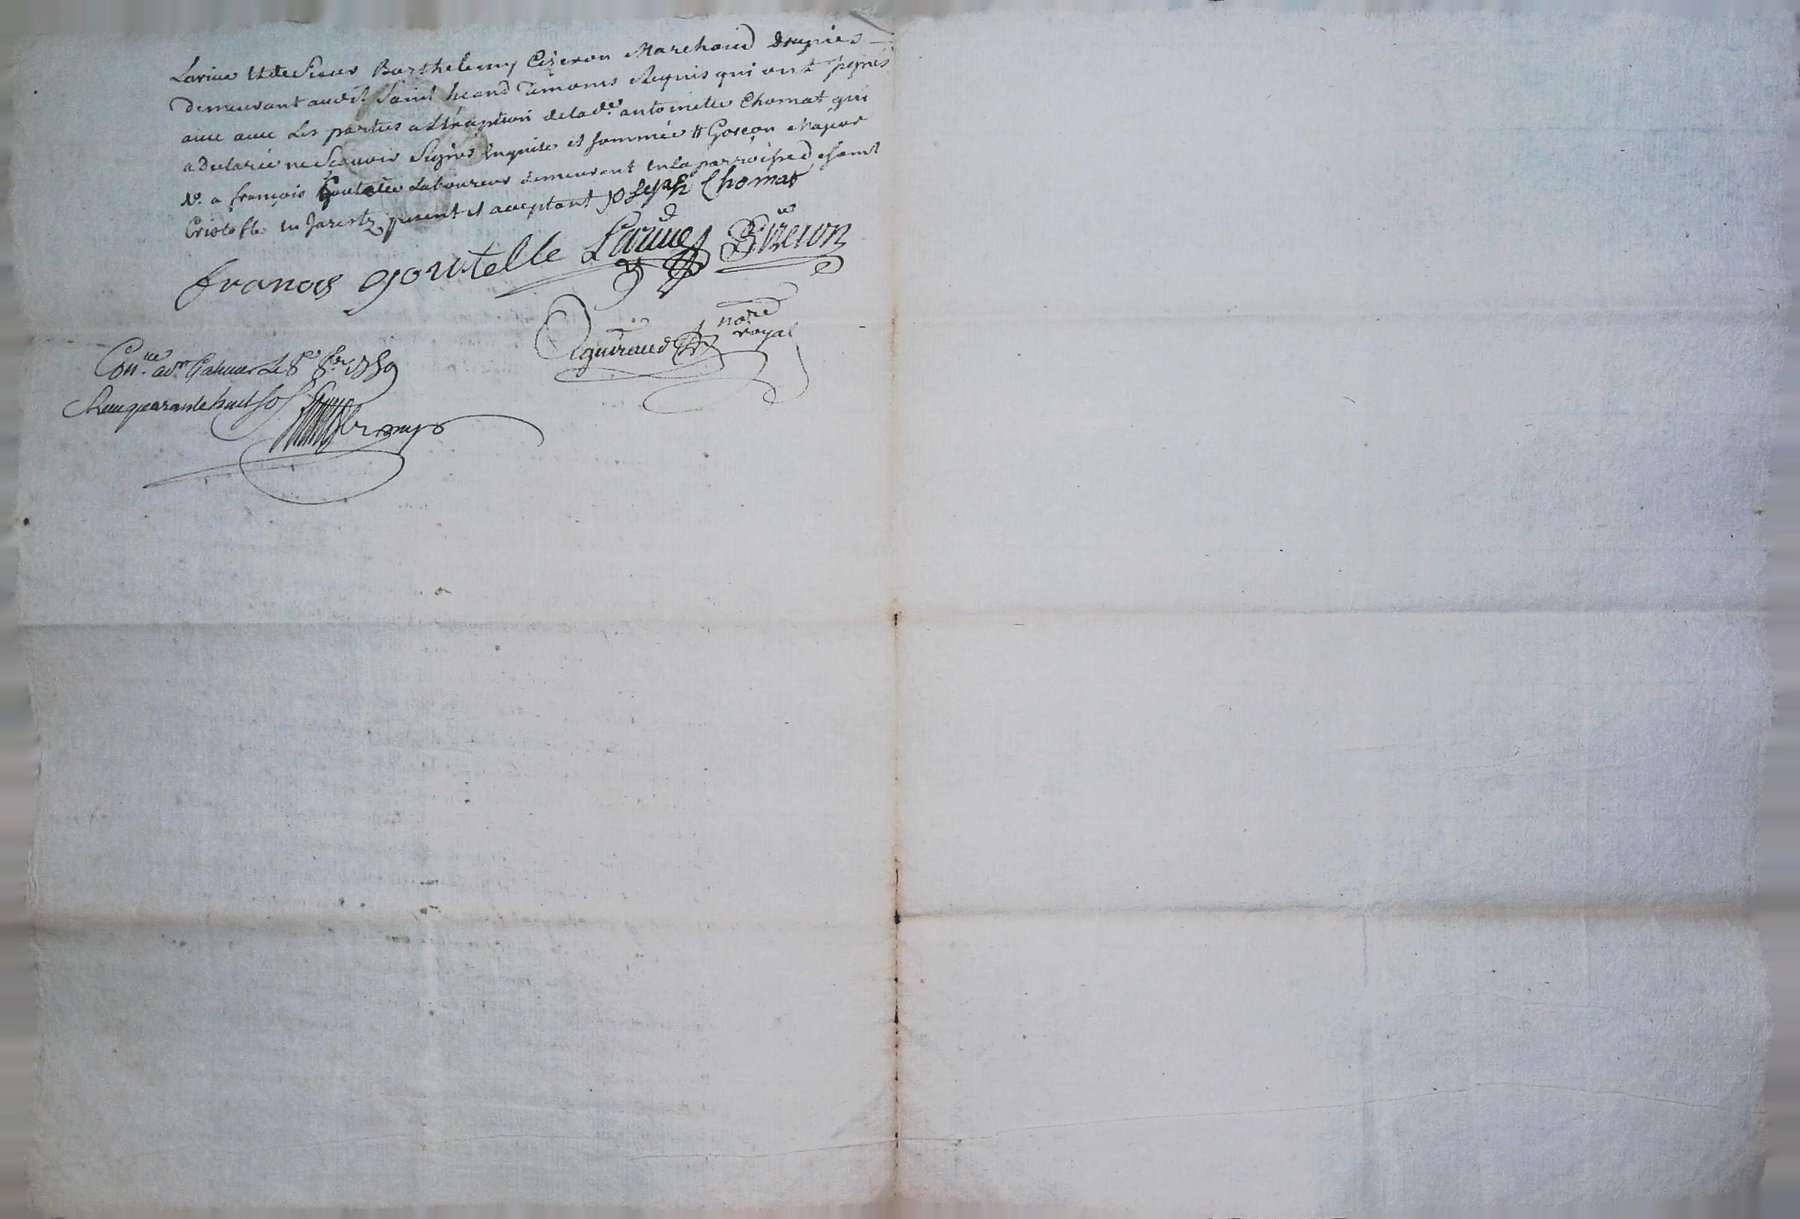 Larive et de Sieur Barthelemy Cizeron Marchand drapier
demeurant audit Saint heand Temoins Requis qui ont signés
avec les parties a L'exception de lad.e antoinette Chomat qui
a declarée ne Scavoir Signer Enquise et sommée # Garçon Majeur
a françois goutelle Laboureur demeurant en la parroisse de saint
Cristofle en Jarestz present et acceptant joseph Chomat
francois goutelle Larive Cizeron
not.re
royal
Con.lle a St Galmier Le 8.e 8.bre 1759
Reçu quarante huit sols